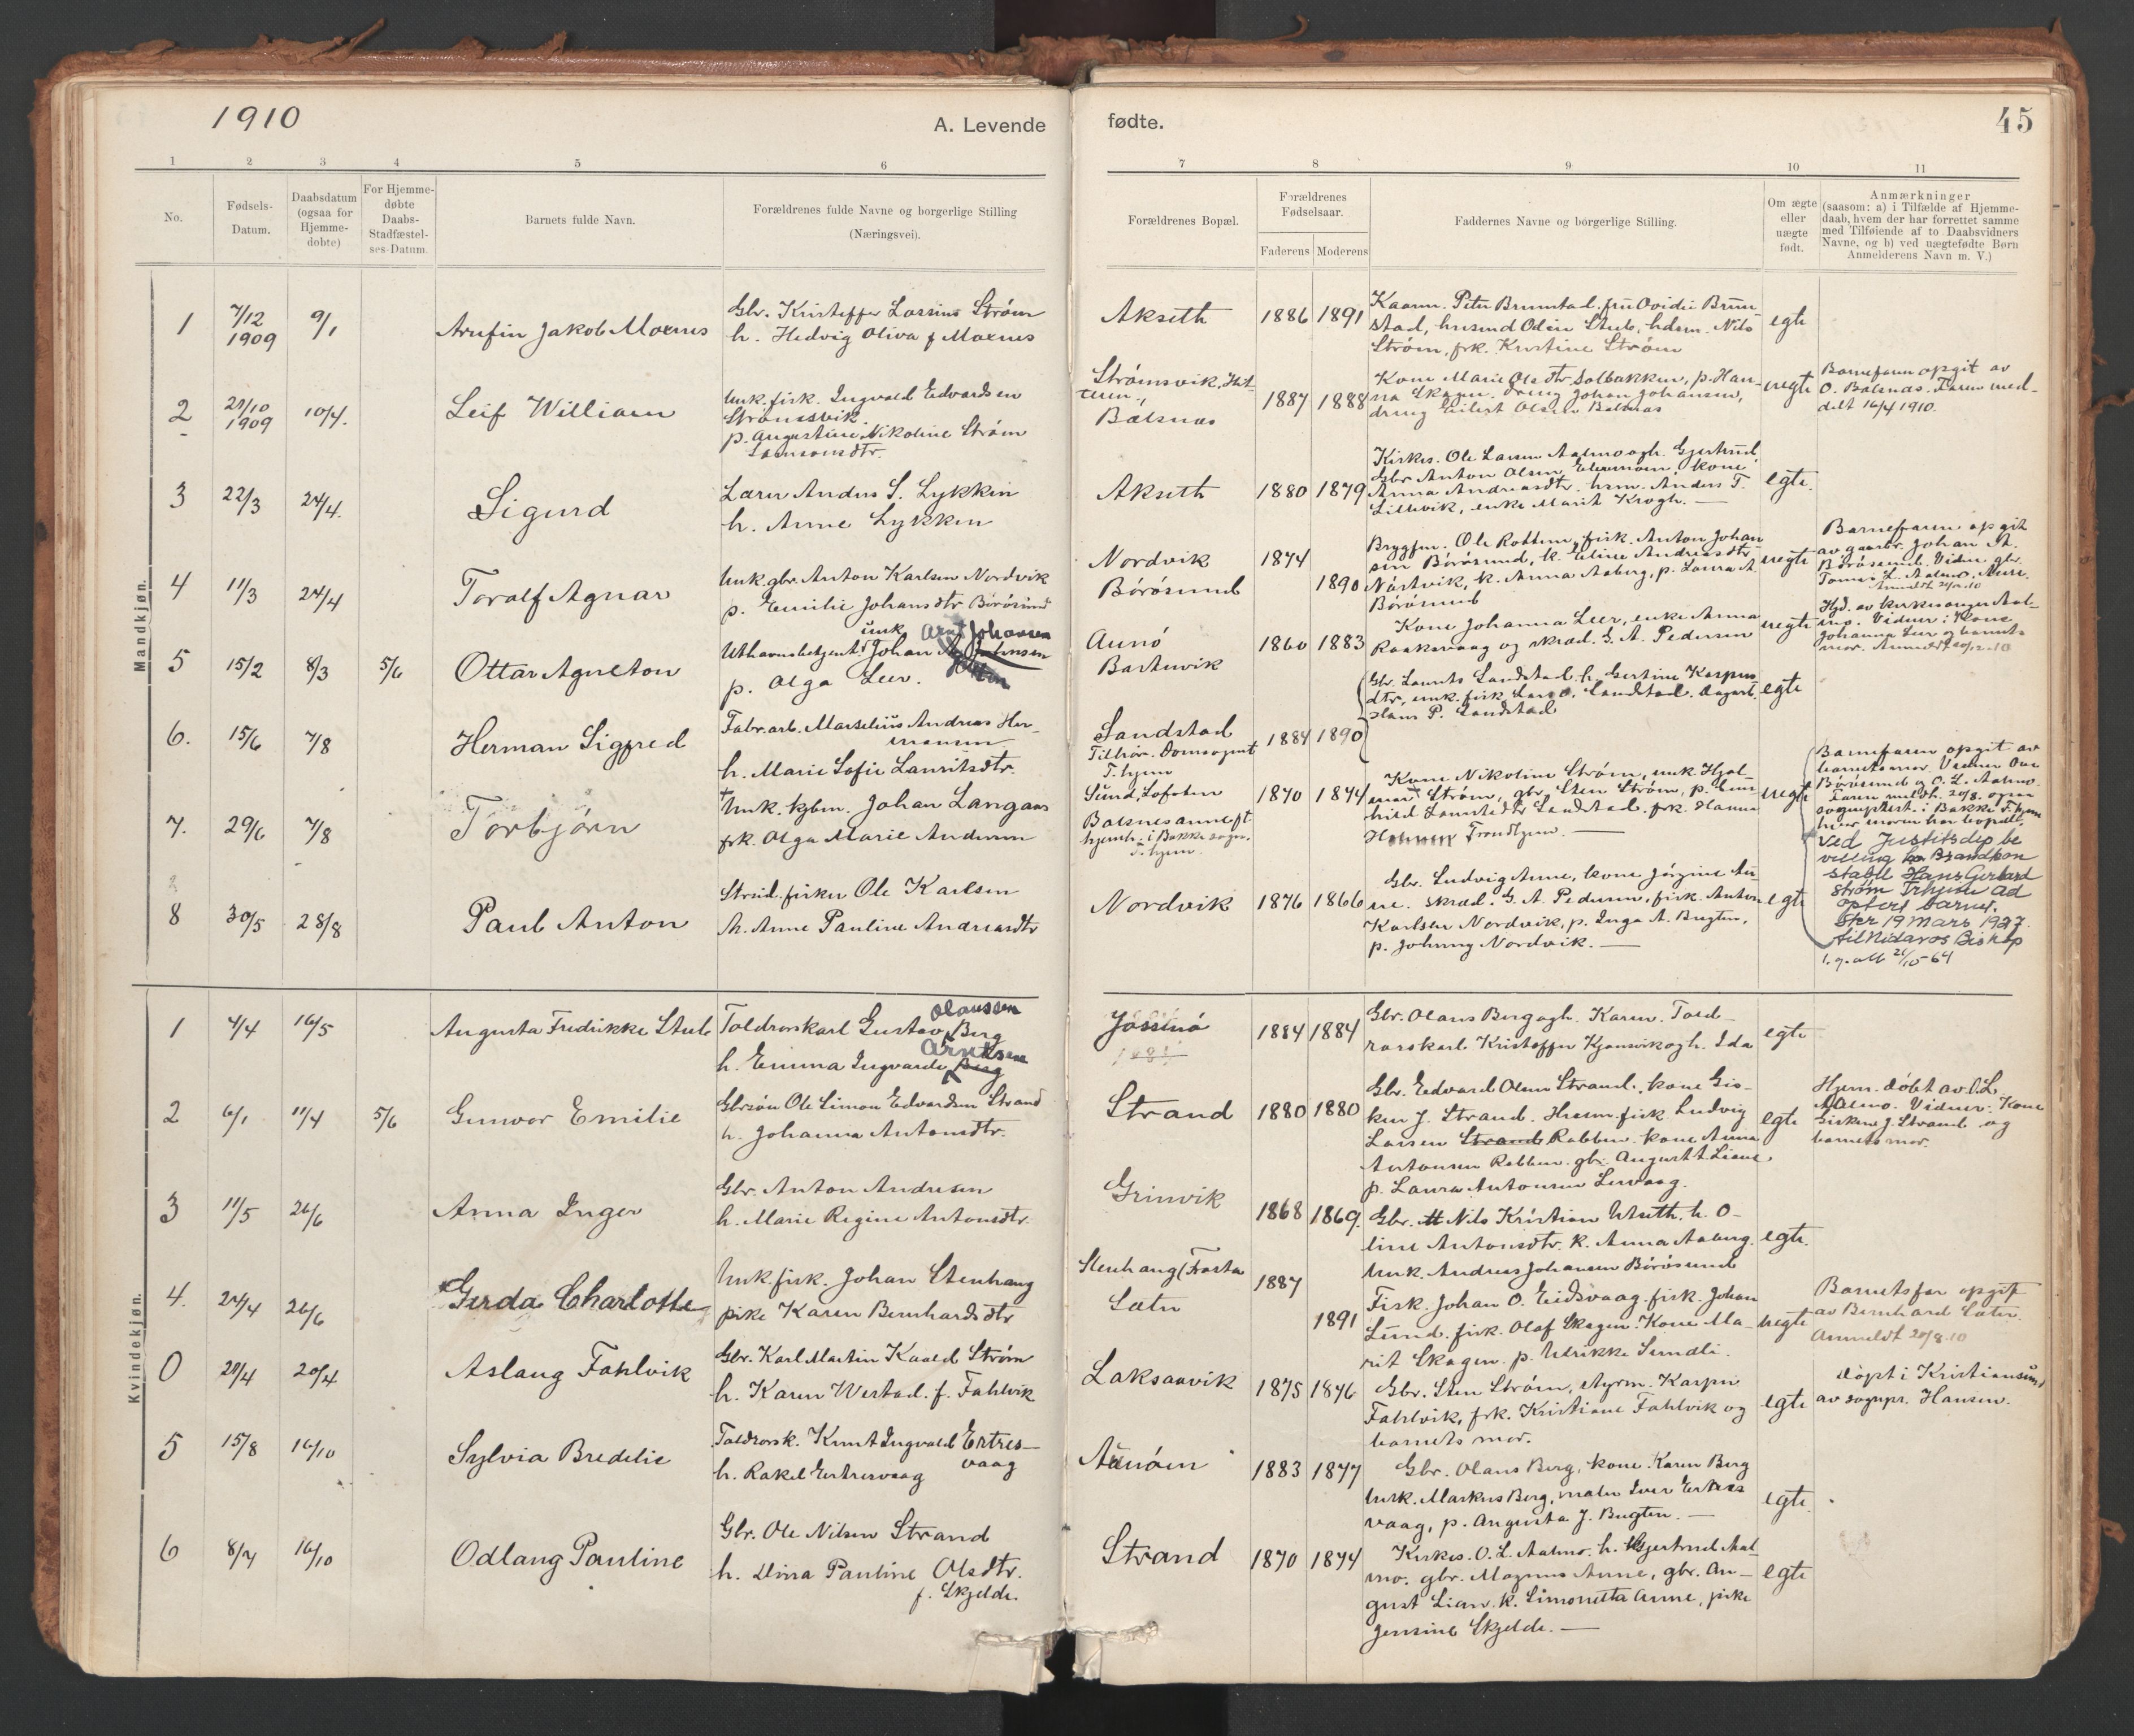 1910
A. Levende
fødte.
45
1 2 3 4 5 6 7 8 9 10 11
No.
Fødsels-
Datum.
Daabsdatum
(ogsaa for
Hjemme-
døbte)
For Hjemme-
døbte
Daabs-
Stadfæstel-
ses-Datum.
Barnets fulde Navn.
Forældrenes fulde Navne og borgerlige Stilling
(Næringsvei).
Forældrenes Bopæl.
Forældrenes
Fødselsaar.
Faderens Moderens
Faddernes Navne og borgerlige Stilling.
Om ægte
eller
uægte
født.
Anmærkninger
(saasom: a) i Tilfælde af Hjemme-
daab, hvem der har forrettet samme
med Tilføiende af to Daabsvidners
Navne, og b) ved uægtefødte Børn
Anmelderens Navn m. V.)
Mandkjøn.
1
7/12
1909
9/1
Arnfin Jakob Moxnes
Gbr. Kristoffer Lossius Strøm
h. Hedvig Oliva f Moxnes
Akseth
1886 1891
Peter Brunstad, fru Ovidie Brun-
stad, husmd Odin Stub, Nils
Strøm, frk. Kristine Strøm
egte
2
1909
10/4.
Leif William
Unk. fisk. Ingvald Edvardsen
Strømsvik
p. Augustine Nikoline Strøm
Strømsvik, Hit-
Balsnes
1887 1888
Kone Marie Olsdtr Solbakken, p. Han-
na Skagen. dreng Johan Johansen,
dreng Eilert Olsen Balsnes
uegte
Barnefaren opgit av
O. Balsnes. Faren med-
delt 16/4 1910.
3
22/3
24/4.
Sigurd
Lærer Anders S. Lykken
h. Anne Lykken
Akseth
1880 1879
Kirkes. Ole Larsen Aalmo og h. Gjertrud,
Gbr Anton Olsen kone
Anna Andreasdtr. hsm. Anders T.
Lillevik, enke Marit Krogh. —
egte.
4
11/3
24/4
Toralf Agnar
Unk. gbr. Anton Karlsen Nordvik
p. Emilie Johansdtr Børøsund
Nordvik
Børøsund
1874
1890
Ole Rotten, fisk. Anton Johan-
sen Børøsund, k. Eline Andreasdtr
k. Anna Aaberg, p. Laura A.
Børøsund
uegte
Barnefaren opgit
av gaardbr. Johan A.
Børøsund. Vidner gbr.
5
15/2
8/3
5/6
Ottar Agneton
unk Arnt Johansen
Johan
p. Olga Leer.
Aunø
Bastuvik
1860 1883
Kone Johanna Leer, enke Anna
Raaksvaag og skræd. G. A. Pedersen
uegte
Hjd. av kirkesanger Aal-
mo. Vidner: Kone
Johanna Leer og barnets
mor. Anmeldt 20/12-10
6.
15/6
7/8
Herman Sigfred
Fabr.arb. Marselius Andreas Her-
mansen
h. Marie Sofie Lauritsdtr.
Sandstad
Tilhør. Domsognet
T.hjem
1884 1890
Gbr. Laurits Sandstad h. Gertine Kaspers-
dtr, unk. fisk. Lars O. Sandstad.
Hans P. Sandstad
egte
7.
29/6
7/8
Torbjørn
Unk. kjbm. Johan Langaas
frk. Olga Marie Andersen
Sund, Lofoten
Balsnesaunet
hjemh. i Bakke sogn.
T.hjem.
1870 1874
Kone Nikoline Strøm, unk. Hjal-
mar Strøm, gbr. Sten Strøm, p. Gun-
hild Lauritsdtr Sandstad. frk. Hanna
Trondhjem. —
uegte
Barnefaren opgit av
barnets mor. Vidner Ove
Børøsund og O. L. Aalmo.
Faren meldt. 20/8. ogsaa
sogneprest. i Bakke T.hjem
hvor moren har bopæl.
Ved Justitsdep be
villing har Brandkon
stabel Hans Gerhard
Strøm Trhjem ad
optert barnet.
Skr 19 Mars 1927
til Nidaros Biskop
8
30/5
28/8
Paul Anton
Strand.fisker Ole Karlsen
h. Anne Pauline Andreasdtr
Nordvik
1876 1866
Gbr. Ludvig Aune, kone Jørgine Au-
ne. skræd. G. A. Pedersen, fisk. Anton
Karlsen Nordvik, p. Inga A. Bugten,
p. Johnny Nordvik. —
egte
Kvindekjøn.
1
4/4
16/5
Augusta Fredrikke Stub
Olaussen
Toldrorskarl Gustav Berg
Arntsen
h. Emma Ingvarda Berg
Jøssenø
1884 1884
Gbr. Olaus Berg og h. Karen. Told-
rorskarl Kristoffer Kjønsvik og h. Ida
egte
2
6/1
11/4
5/6
Gunvor Emilie
Gbrsøn Ole Simon Edvardsen Strand
h. Johanna Antonsdtr.
Strand
1880 1880
Gbr. Edvard Olsen Strand. kone Gis-
ken J. Strand. fisk. Ludvig
Larsen Strand Rabben. kone Anna
Antonsen Rabben. gbr. August Lian,
p. Laura Antonsen Leervaag.
egte
Hjem. døbt av O. L.
Aalmo. Vidner. Kone
Gisken J. Strand og
barnets mor.
3
11/5
26/6
Anna Inger
Gbr. Anton Andresen
h. Marie Regine Antonsdtr.
Grinvik
1868 1869.
Gbr. Nils Kristian Utseth. h. O-
line Antonsdtr. k. Anna Aaberg.
Unk. Andreas Johansen Børøsund
egte.
4.
24/4
26/6
Gerda Charlotte
Unk. fisk. Johan Stenhaug
pike Karen Bernhardsdtr
Stenhaug (Frosta
Sætn
1887
1891
Fisk. Johan O. Eidsvaag. fisk. Johan
Lund. fisk. Olaf Skagen. Kone Ma-
rit Skagen. p. Ulrikke Sundli.
uegte
Barnetsfar opgit
av Bernhard Sæter.
Anmeldt 20/8.10
0
21/4
20/4
Aslaug Fahlvik
Gbr. Karl Martin Kaald Strøm
h. Karen Werstad. f. Fahlvik
Laksaavik
1875 1876
Gbr. Sten Strøm, styrm. Kasper
Fahlvik, frk. Kristiane Fahlvik og
barnets mor.
egte
døpt i Kristiansund
av sognepr. Hansen.
5
15/8
16/10
Sylvia Bredilie
Toldrorsk. Knut Ingvald Ertres-
vaag
h. Rakel Ertresvaag
Aunøen
1883 1877
Gbr. Olaus Berg, kone Karen Berg
Unk. Markus Berg, maler Iver Ertres
vaag, p. Augusta J. Bugten. —
egte
6
8/7
16/10
Odlaug Pauline
Gbr. Ole Nilsen Strand
h. Dina Pauline Olsdtr.
f. Skjelde.
Strand
1870 1874
Kirkes. O. L. Aalmo. h. Gjertrud Aal-
mo. gbr. Magnus Aune, gbr. Au-
gust Lian. k. Simonetta Aune, pike
Jensine Skjelde. —
egte